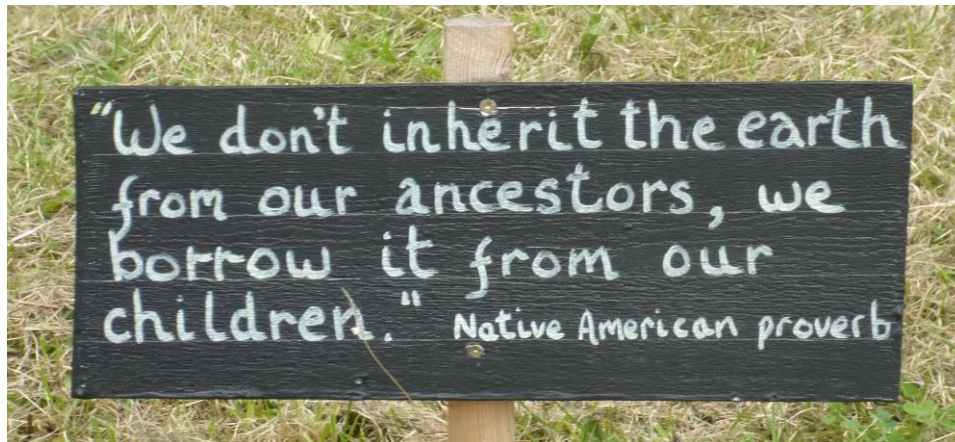 "We don't inherit the earth
from our ancestors, we
borrow it from our
children." Native American proverb